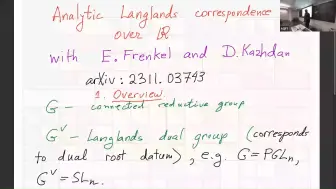 Analytic Langlands correspondence
over ℝ
with E. Frenkel and D. Kazhdan
arXiv: 2311.03743
1. Overview.
G – connected reductive group
G^∨ – Langlands dual group (corresponds
to dual root datum), e.g. G = PGL_n,
G^∨ = SL_n.